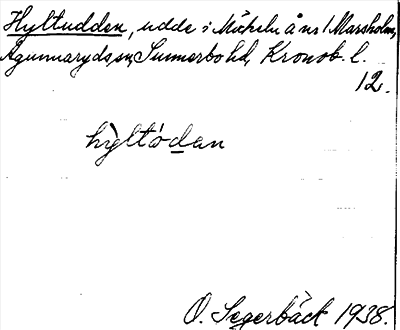 Hyltudden, udde i Möckeln å nr 1 Marsholm,
Agunnaryds sn, Sunnerbo hd, Kronob. l.
12.
hỳltódan
O. Segerbäck 1938.